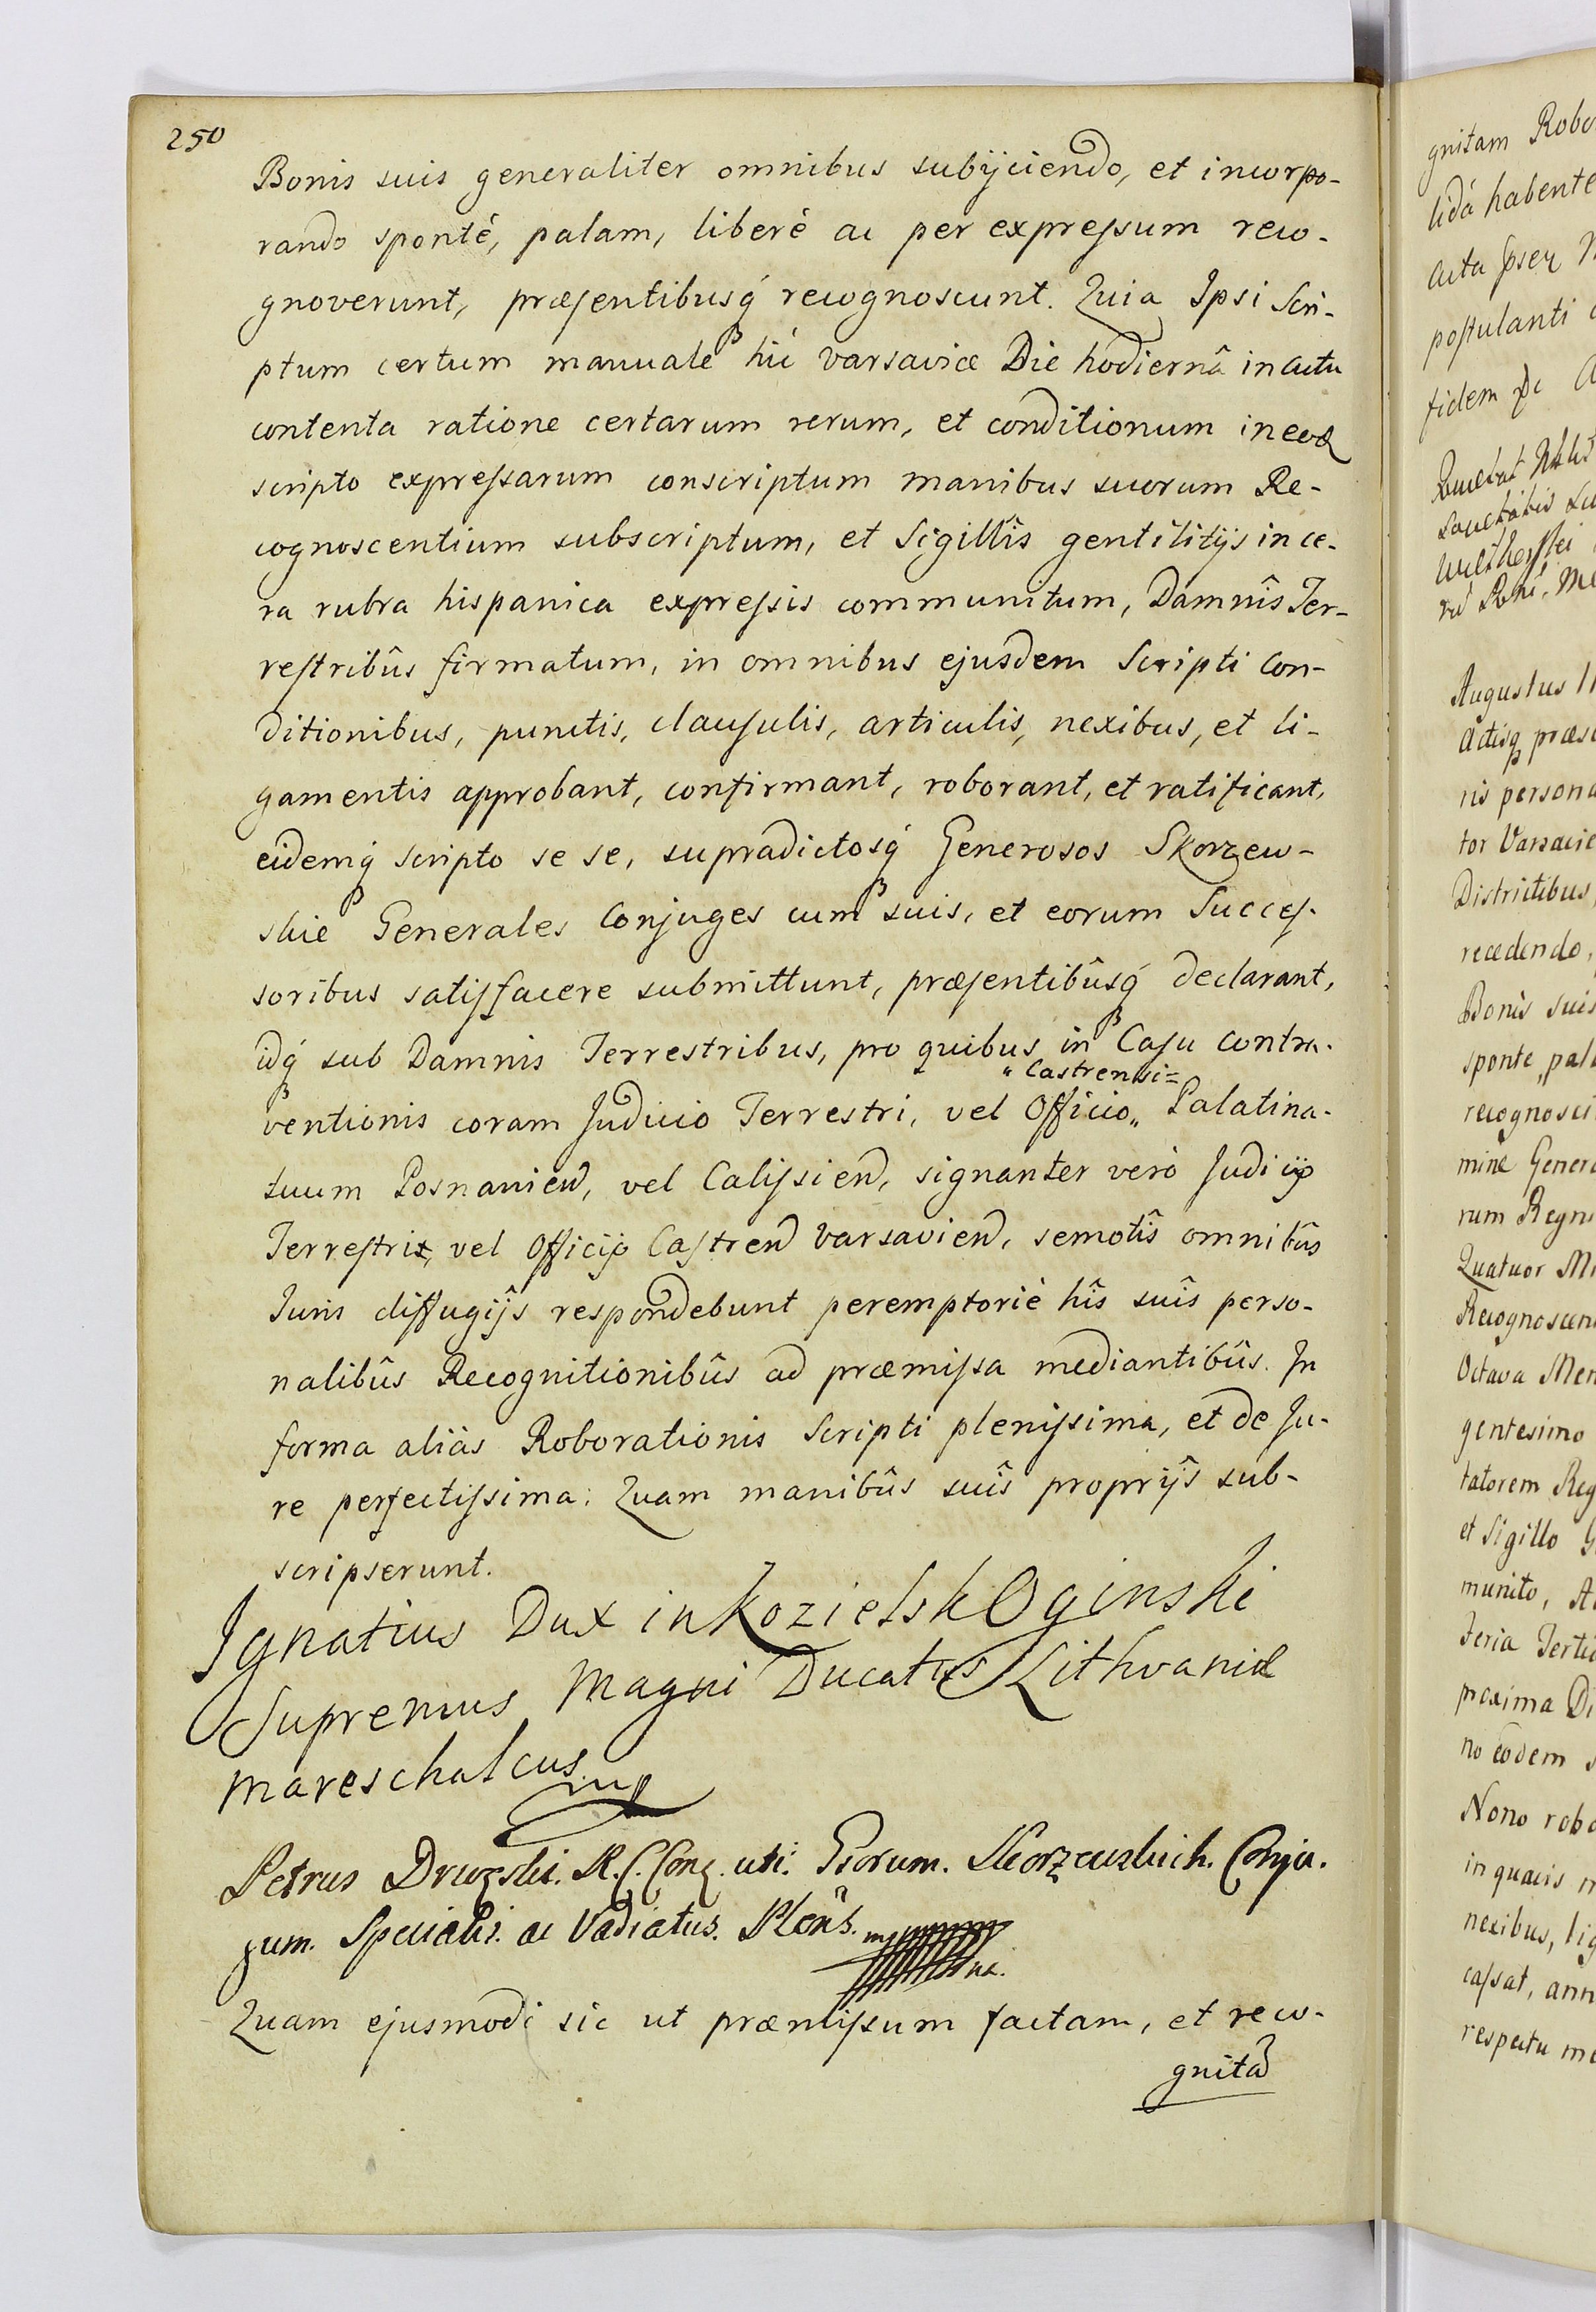 250
Bonis suis generaliter omnibus subijciendo, et incorpo-
rando spontè, palam, liberè ac per expressum reco-
gnoverunt, præsentibusq́ recognoscunt. Quia Ipsi Scri-
ptum certum manuale hic Varsaviæ Die hodiernâ in actu
contenta ratione certarum rerum, et conditionum in eod
scripto expressarum conscriptum manibus suorum Re-
cognoscentium subscriptum, et Sigillîs gentilitijs in ce-
ra rubra hispanica expressis communitum, Damnîs Ter-
restribûs firmatum, in omnibus ejusdem Scripti Con-
ditionibus, punctis, clausulis, articulis, nexibus, et li-
gamentis approbant, confirmant, roborant, et ratificant,
eidemq́ scripto se se, supradictosq́ Generosos Skorzew-
skie Generales Conjuges cum suis, et eorum Succes-
soribus satisfacere submittunt, præsentibûsq́ declarant,
idq́ sub Damnis Terrestribus, pro quibus in Casu contra-
"Castrensi=
ventionis coram Judicio Terrestri, vel Officio„ Palatina-
tuum Posnanien, vel Calissien, signanter verò Judicijs
Terrestris, vel Officijs Castren Varsavien, semotîs omnibûs
Juris diffugijs respondebunt peremptoriè hîs suîs perso-
nalibûs Recognitionibûs ad præmissa mediantibûs. In
forma aliàs Roborationis Scripti plenissima, et de Ju-
re perfectissima: Quam manibûs suîs proprijs sub-
scripserunt.
Ignatius Dux in Kozielsk Oginski
Supremus Magni Ducatus Lithvaniæ
Mareschalcus mp
Petrus Druzski. R. C. Conz. uti. Gsorum. Skorzewskich. Conju-
gum. Specialis. ac Vadiatus. Plen̄s.
Quam ejusmodi sic ut præmissum factam, et reco-
gnitã
gnitam Robo
lidâ habente
acta
postulanti
fidem
Augustus
Actisq præs
ris persona
tor Varsavie
Districtibus,
recedendo,
Bonis suis
sponte, pala
recognosci
mine Genero
rum Regni
Quatuor M
Recognoscen
Octava Men
gentesimo
tatorem Reg
et Sigillo G
munito, A
Feria Tertia
proxima Di
no eodem s
Nono robo
in quavis
nexibus, lig
cassat, ann
respectu me